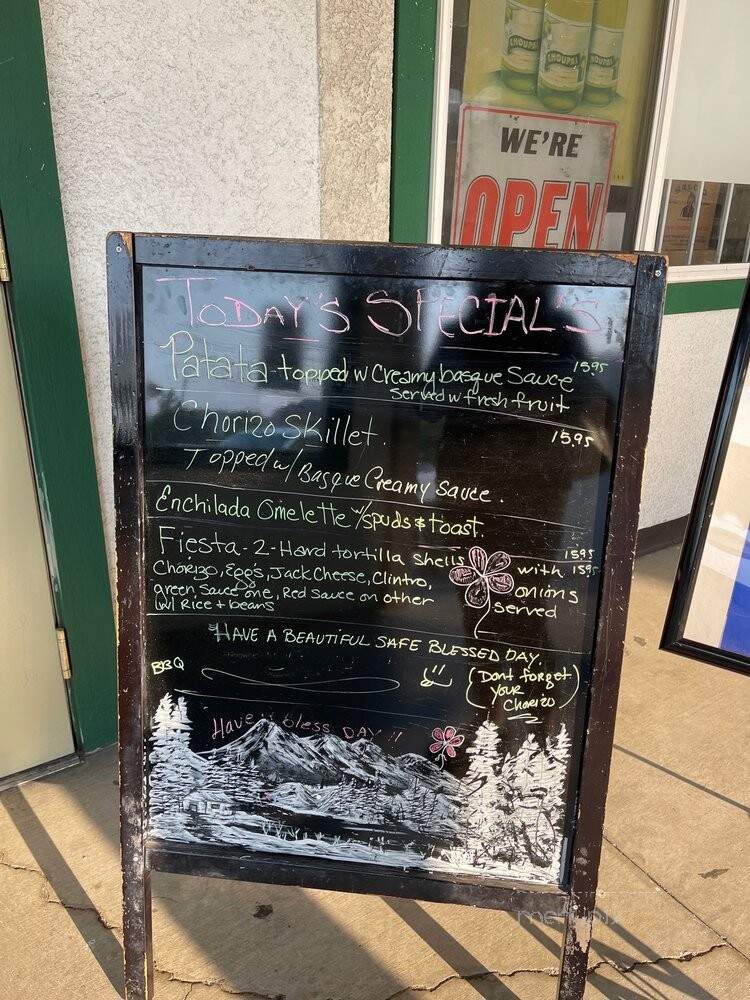 CHOUPAL
WE'RE
OPEN
TODAY'S SPECIAL'S
Patata topped w Creamy basque Sauce 15.95
Served w fresh fruit
Chorizo Skillet. 15.95
Topped w/ Basque Creamy Sauce.
Enchilada Omelette w/spuds & toast.
15.95
Fiesta - 2 - Hard tortilla shells with 15.95
Chorizo, Eggs, Jack Cheese, Clintro, onions
green Sauce one, Red Sauce on other served
w/ Rice + beans
HAVE A BEAUTIFUL SAFE BLESSED DAY.
BBQ
(Dont forget
your
Chorizo)
Have bless DAY!!